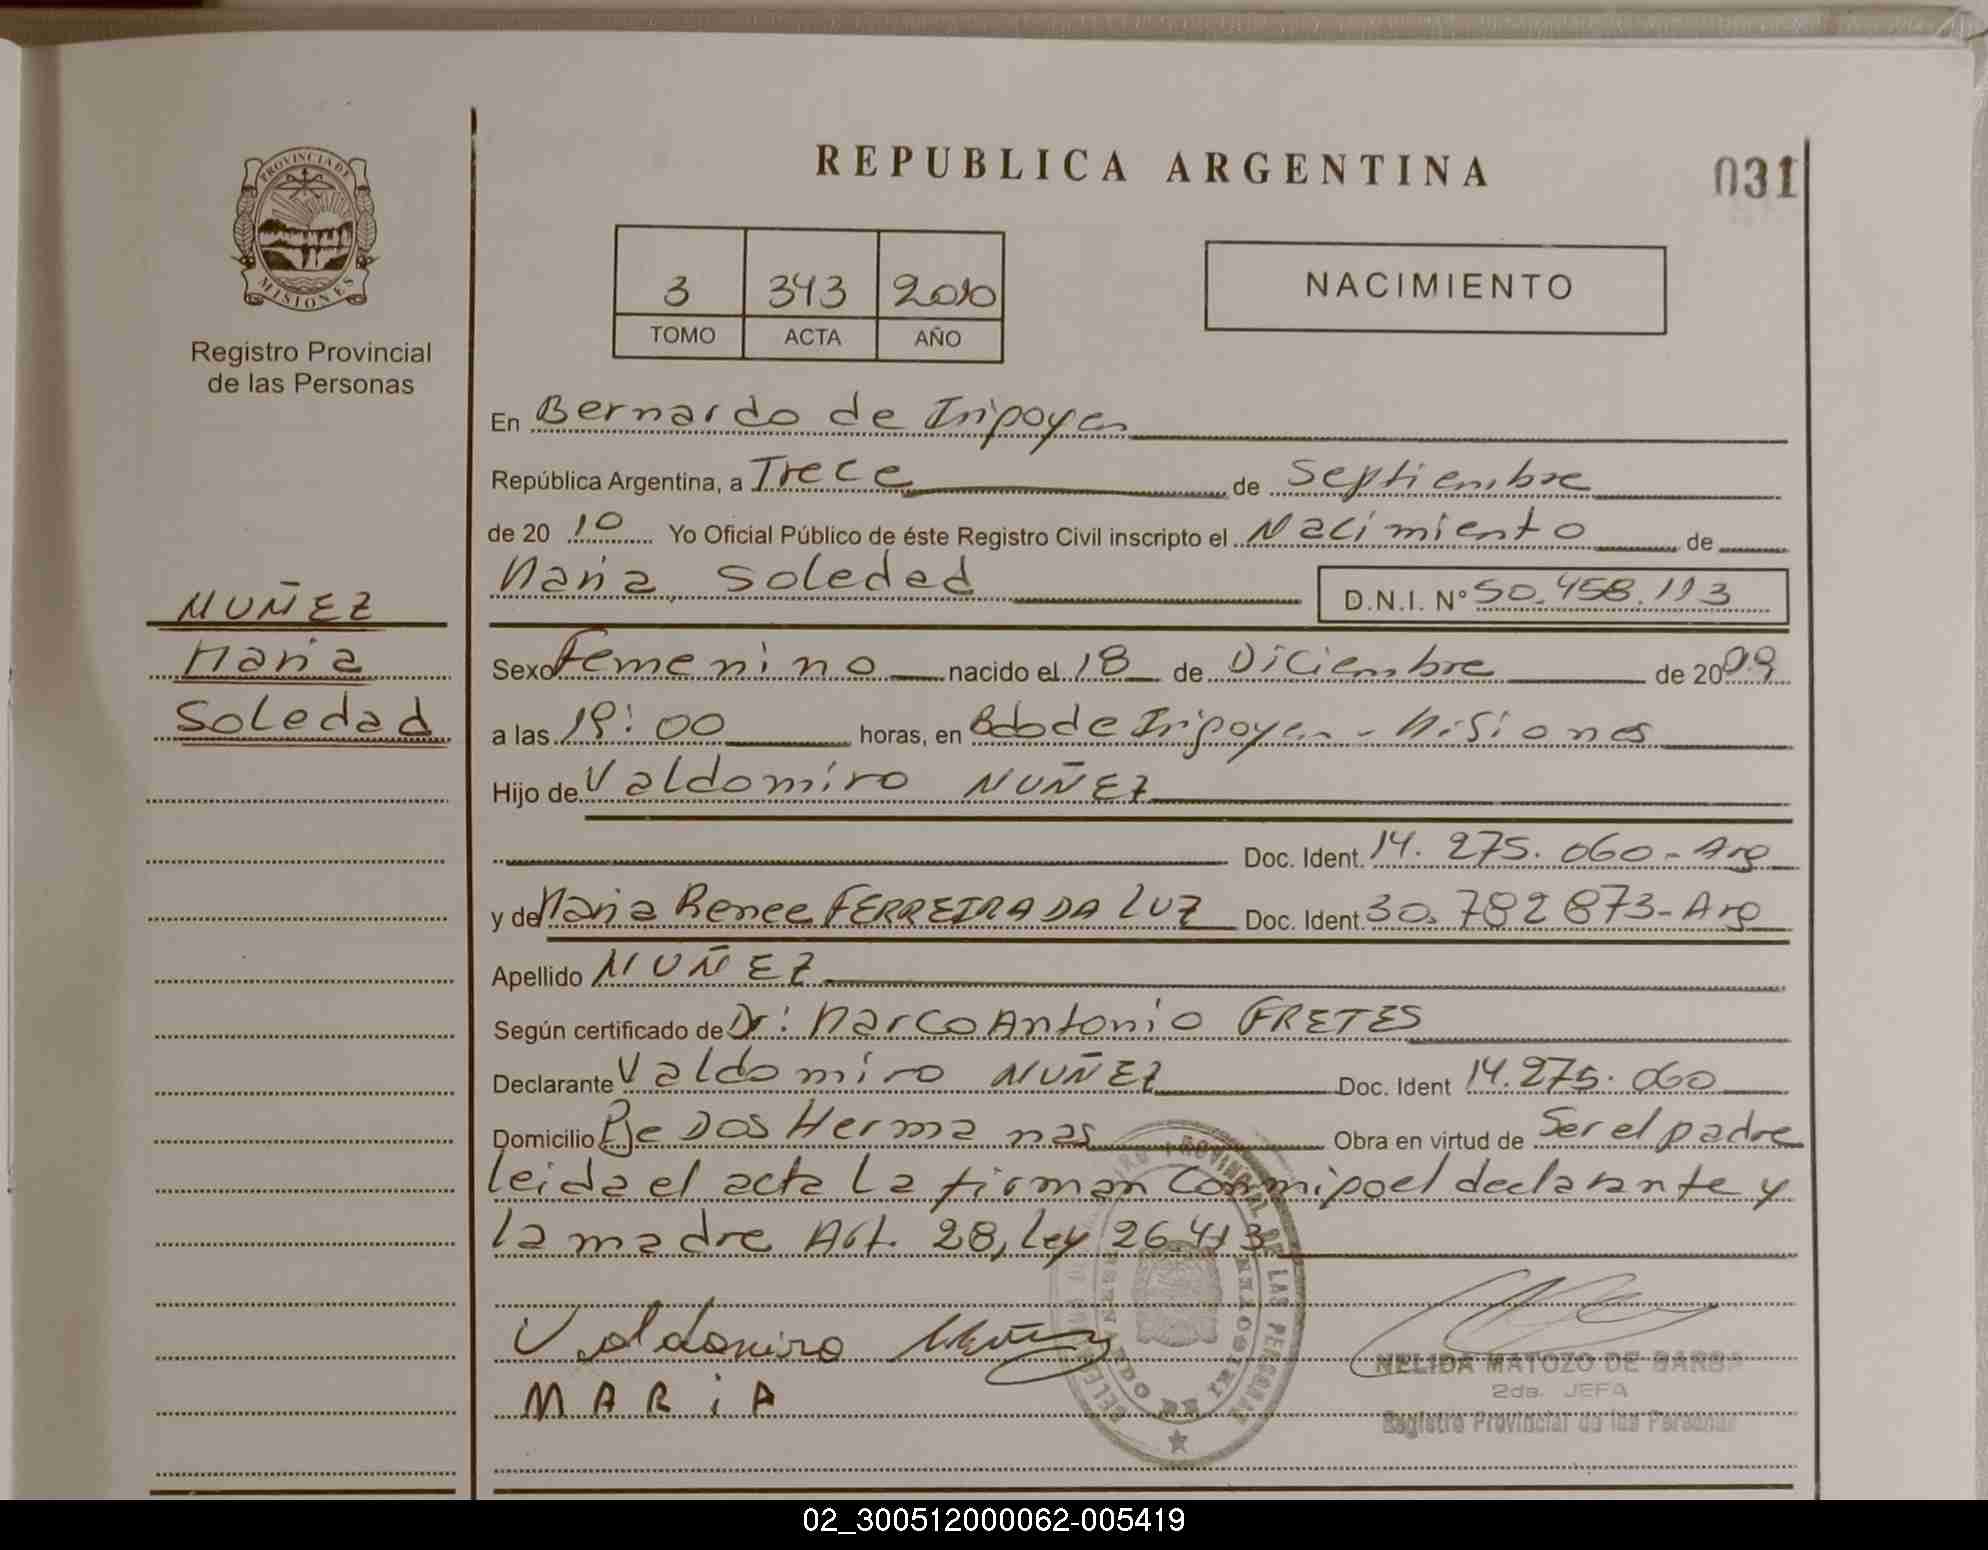 REPUBLICA ARGENTINA
031
PROVINCIA DE
MISIONES
Registro Provincial
de las Personas
3 343 2010
TOMO ACTA AÑO
NACIMIENTO
En Bernardo de Irigoyen
República Argentina, a Trece de Septiembre
de 20 10 Yo Oficial Público de éste Registro Civil inscripto el Nacimiento de
Maria Soledad D.N.I. Nº 50.458.113
NUÑEZ
Maria
Soledad
Sexo Femenino nacido el 18 de Diciembre de 2009
a las 19:00 horas, en Bdo de Irigoyen - Misiones
Hijo de Valdomiro NUÑEZ
Doc. Ident. 14.275.060 - Arg
y de Maria Renee FERREIRA DA LUZ Doc. Ident. 30.782873 - Arg
Apellido NUÑEZ
Según certificado de Dr: Marco Antonio FRETES
Declarante Valdomiro NUÑEZ Doc. Ident 14.275.060
Domicilio Pje Dos Hermanas Obra en virtud de Ser el padre
leida el acta La firman Conmigo el declarante y
la madre Art. 28, Ley 26413
Valdomiro Nuñez
MARiA
NELIDA MATOZO DE BARBA
2da. JEFA
Registro Provincial de las Personas
02_300512000062-005419